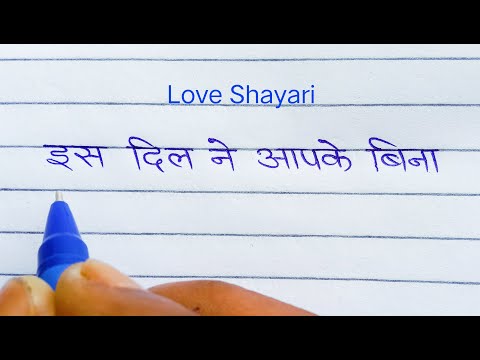 Love Shayari
इस दिल ने आपके बिना